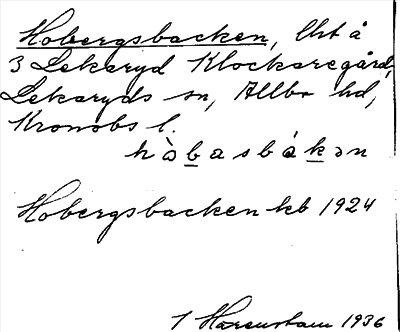 Hobergsbacken, lht å
3 Lekaryd Klockaregård,
Lekaryds sn, Allbo hd,
Kronobs l.
hòbasbákən
Hobergsbacken kb 1924
1936